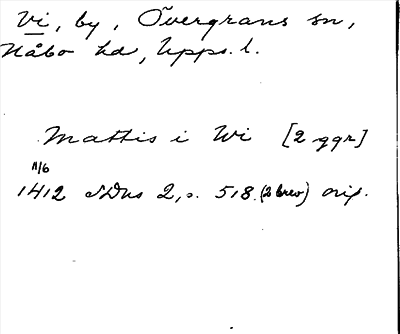 Vi, by, Övergrans sn,
Håbo hd, Upps. l.
Mattis i Wi [2 ggr]
11/6
1412 SDns 2, s. 518. (2 brev) orig.